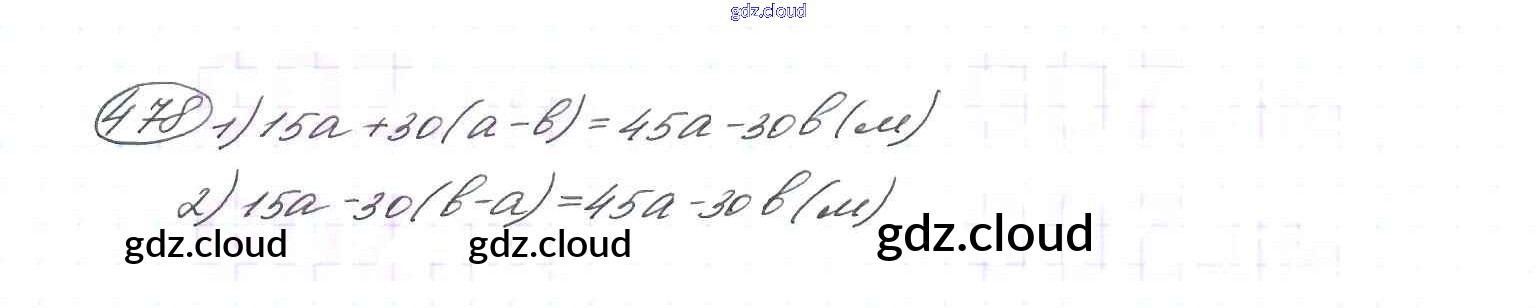 gdz.cloud
478 1) 15а + 30(а - в) = 45а - 30в (м)
2) 15а - 30(в - а) = 45а - 30в (м)
gdz.cloud gdz.cloud gdz.cloud